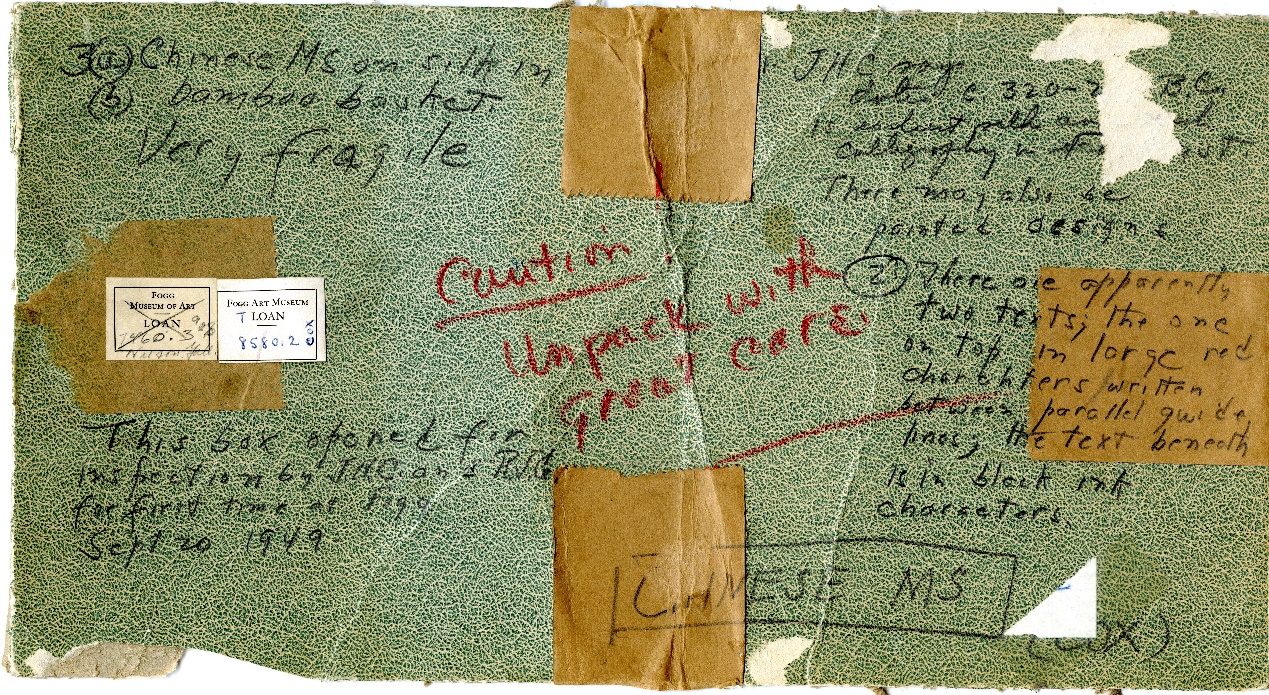 3(a) Chinese MS on silk in
(b) bamboo basket
Very fragile
JHC may
date c 320-
B.C.
calligraphy
There may also be
painted designs
Caution!
Unpack with
great care
(2) There are apparently
two texts; the one
on top in large red
charachters written
between parallel guide
lines; the text beneath
is in black ink
characters.
FOGG
MUSEUM OF ART
LOAN
1960.3
FOGG ART MUSEUM
T LOAN
8580.2 COX
This box opened for
inspection by JHC and
for first time at Fogg
Sept 20 1949
CHINESE MS
(COX)